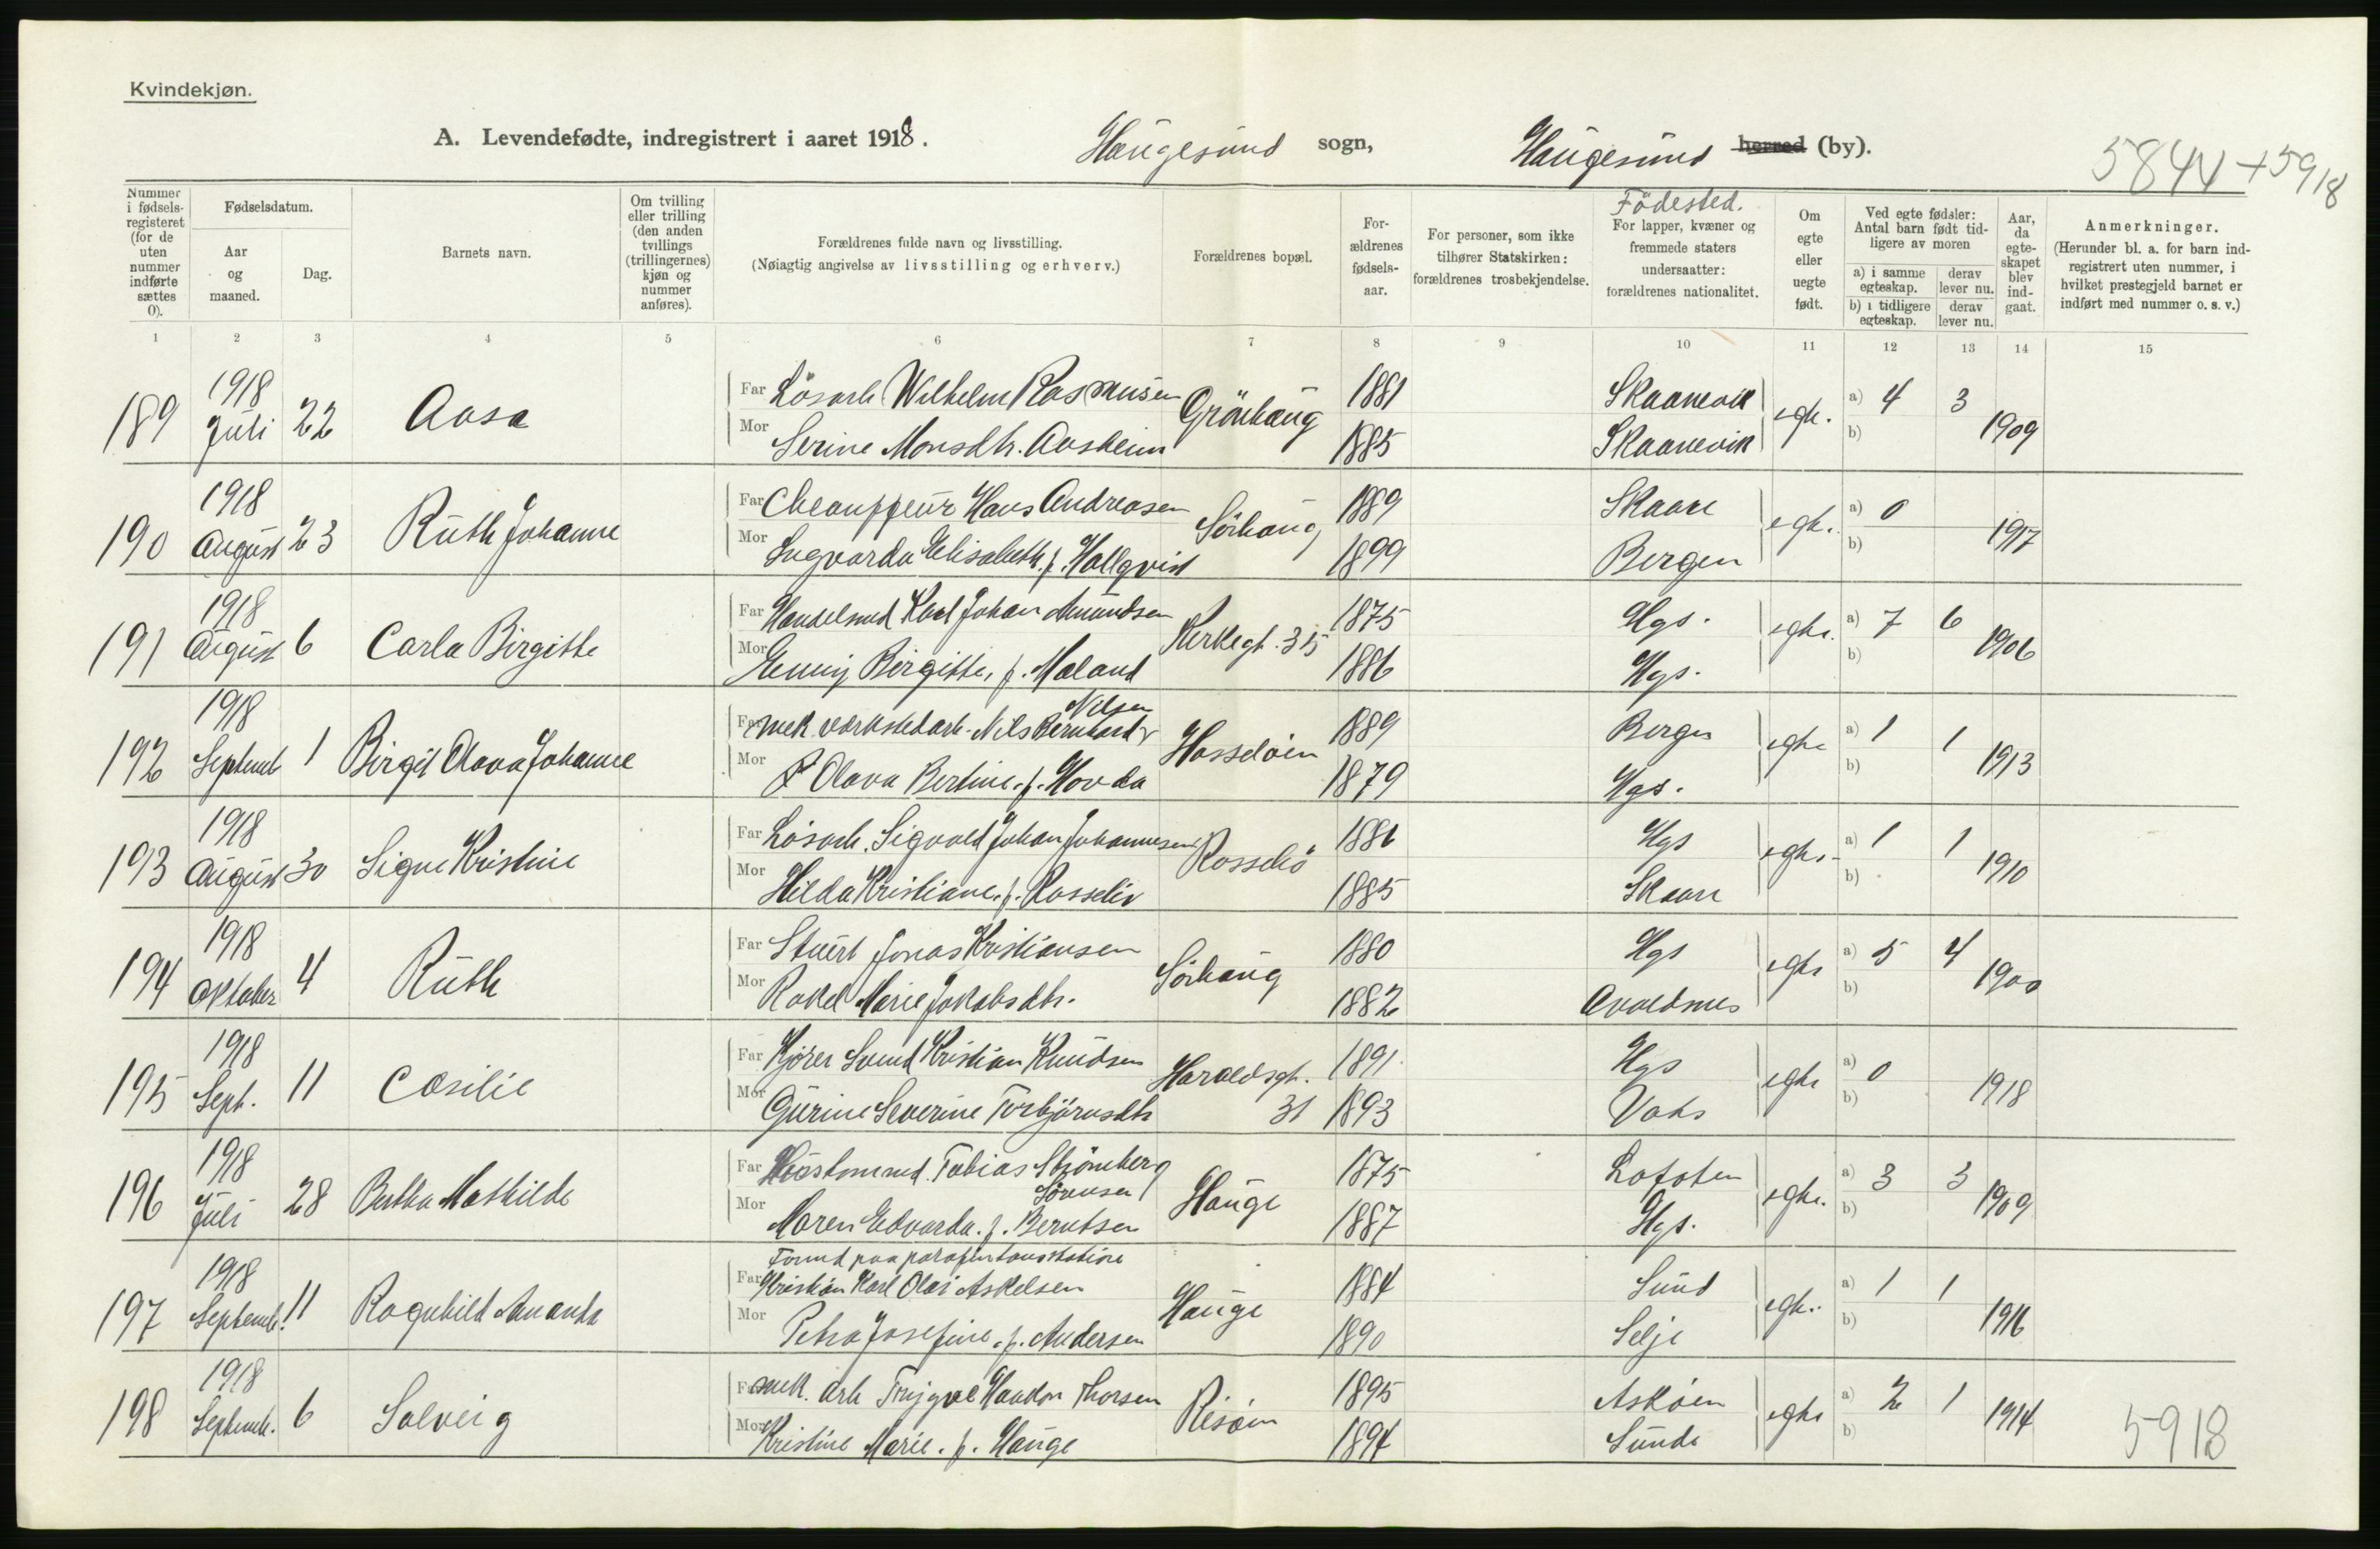 Kvindekjøn.
A. Levendefødte, indregistrert i aaret 1918.
Haugesund sogn, Haugesund herred (by).
5844 + 5918
Nummer i fødsels-registeret (for de uten nummer indførte sættes 0).
Fødselsdatum.
Aar og maaned.
Dag.
Barnets navn.
Om tvilling eller trilling (den anden tvillings (trillingernes) kjøn og nummer anføres).
Forældrenes fulde navn og livsstilling.
(Nøiagtig angivelse av livsstilling og erhverv.)
Forældrenes bopæl.
For-ældrenes fødsels-aar.
For personer, som ikke tilhører Statskirken: forældrenes trosbekjendelse.
Födested.
For lapper, kvæner og fremmede staters undersaatter: forældrenes nationalitet.
Om egte eller uegte født.
Ved egte fødsler: Antal barn født tid-ligere av moren
a) i samme egteskap.
derav lever nu.
b) i tidligere egteskap.
derav lever nu.
Aar, da egte-skapet blev ind-gaat.
Anmerkninger.
(Herunder bl. a. for barn ind-registrert uten nummer, i hvilket prestegjeld barnet er indført med nummer o. s. v.)
1 2 3 4 5 6 7 8 9 10 11 12 13 14 15
189 1918 Juli 22 Aasa Far Lösarb. Wilhelm Rasmusen Grönhaug 1881 Skaanevik egte. a) 4 3 1909
Mor Serine Monsdtr. Aasheim 1885 Skaanevik b)
190 1918 August 23 Ruth Johanne Far Cheauffeur Hans Andreasen Sörhaug 1889 Skaare egte. a) 0 1917
Mor Ingvarda Elisabeth f. Hallqvist 1899 Bergen b)
191 1918 August 6 Carla Birgitte Far Handelsmd Karl Johan Amundsen Kirkegt. 35 1875 Hgs. egte. a) 7 6 1906
Mor Jenny Birgitte, f. Maland 1886 Hgs. b)
192 1918 Septemb 1 Birgit Olava Johanne Far mek verkstedarb. Nils Bernhard Nilsen Hasseløen 1889 Bergen egte a) 1 1 1913
Mor Olava Bertine. f. Hovda 1879 Hgs. b)
193 1918 August 30 Signe Kristine Far Lösarb. Sigvald Johan Johannesen Rossebö 1886 Hgs egte. a) 1 1 1910
Mor Hilda Kristiane. f. Rosseliv 1885 Skaare b)
194 1918 Oktober 4 Ruth Far Stuert Jonas Kristiansen Sörhaug 1880 Hgs egte a) 5 4 1900
Mor Rakel Marie Jakobsdtr. 1882 Avaldsnes b)
195 1918 Sept. 11 Cæsilie Far Kjörer Svend Kristian Knudsen Haraldsgt. 31 1891 Hgs egte a) 0 1918
Mor Gurine Severine Torbjörnsdtr 1893 Vats b)
196 1918 Juli 28 Bertha Mathilde Far Tobias Strömberg Sörensen Hauge 1875 Lofoten egte. a) 3 3 1909
Mor Maren Edvarda. f. Berntsen 1887 Hgs. b)
197 1918 Septemb. 11 Ragnhild Amanda Far Formd paa parafintankstation Kristian Karl Olai Askelsen Hauge 1884 Sund egte. a) 1 1 1916
Mor Petra Josefine. f. Andersen 1890 Selje b)
198 1918 Septemb. 6 Solveig Far mek. arb Trygve Haakon Thorsen Risöen 1895 Asköen egte a) 2 1 1914
Mor Kristine Marie. f. Hauge 1894 Sunde b)
5918